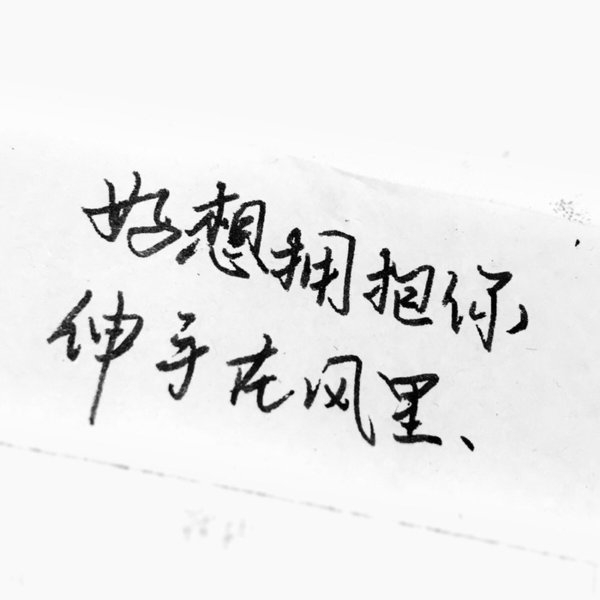 好想拥抱你
伸手在风里、